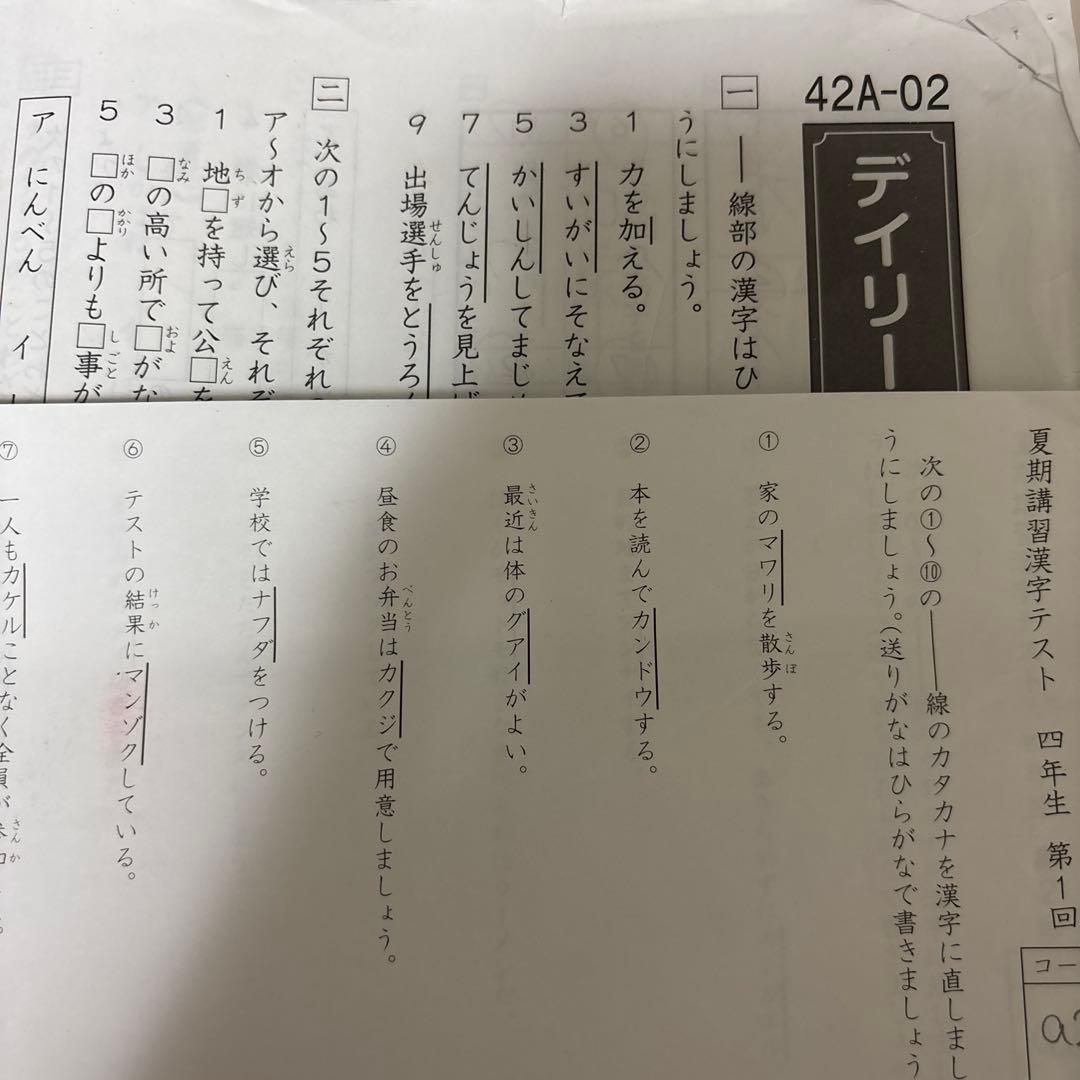 42A-02
デイリー
一 ――線部の漢字はひ
うにしましょう。
1 力を加える。
3 すいがいにそなえて
5 かいしんしてまじめ
7 てんじょうを見上げ
9 出場選手をとうろく
せんしゅ
二 次の1～5それぞれの
ア～オから選び、それぞ
えら
1 地□を持って公□を
ちず えん
3 □の高い所で□がな
なみ およ
5 □の□よりも□事が
ほか かかり しごと
ア にんべん イ
夏期講習漢字テスト 四年生 第1回
コー
a2
次の①～⑩の――線のカタカナを漢字に直しまし
うにしましょう。(送りがなはひらがなで書きましょう
① 家のマワリを散歩する。
さんぽ
② 本を読んでカンドウする。
③ 最近は体のグアイがよい。
さいきん
④ 昼食のお弁当はカクジで用意しましょう。
べんとう
⑤ 学校ではナフダをつける。
⑥ テストの結果にマンゾクしている。
けっか
⑦ 一人もカケルことなく全員が
さんか